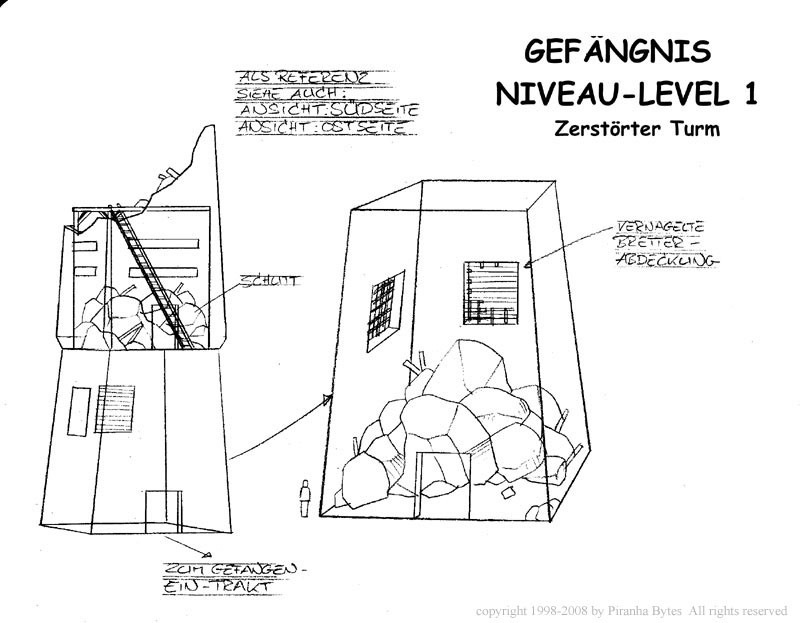 GEFÄNGNIS
NIVEAU-LEVEL 1
Zerstörter Turm
ALS REFERENZ
SIEHE AUCH:
ANSICHT: SÜDSEITE
ANSICHT: OSTSEITE
VERNAGELTE
BRETTER-
ABDECKUNG
SCHUTT
ZUM GEFANGEN-
EIN-TRAKT
copyright 1998-2008 by Piranha Bytes All rights reserved